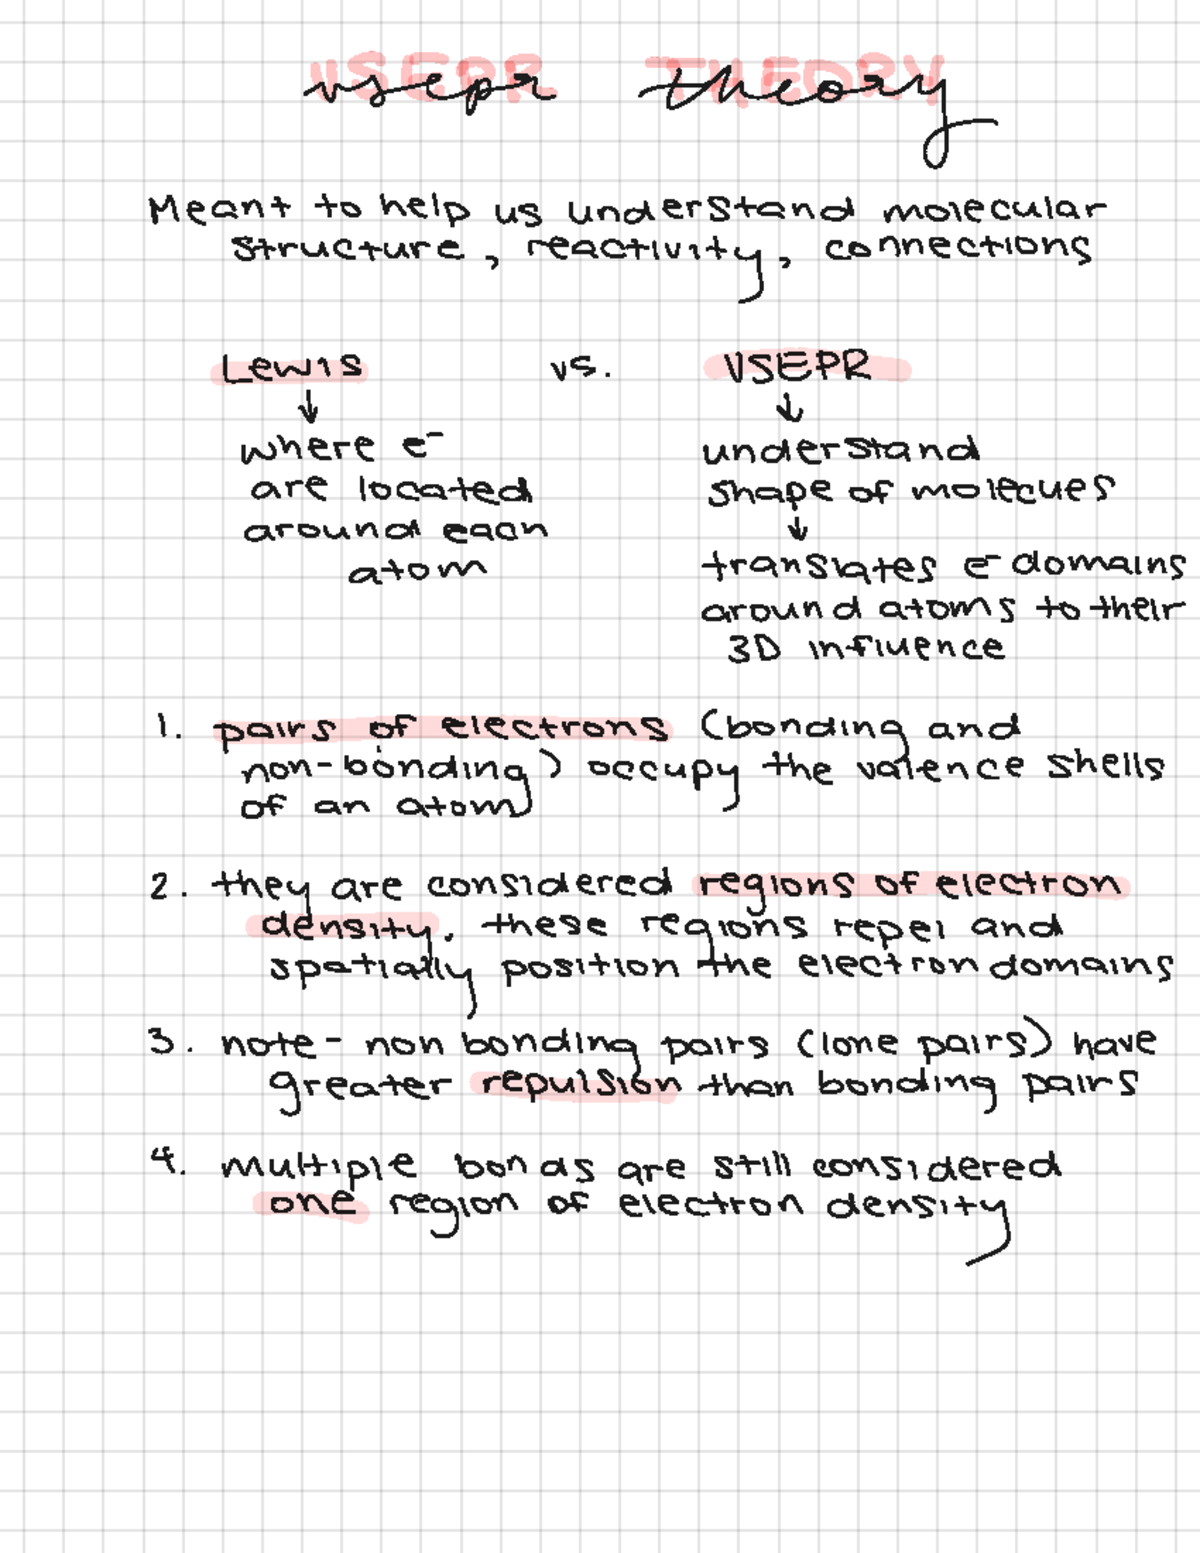 VSEPR THEORY
vsepr theory
Meant to help us understand molecular
structure, reactivity, connections
Lewis vs. VSEPR
↓ ↓
where e⁻ understand
are located shape of molecues
around each ↓
atom translates e⁻ domains
around atoms to their
3D influence
1. pairs of electrons (bonding and
non-bonding) occupy the valence shells
of an atom
2. they are considered regions of electron
density. these regions repel and
spatially position the electron domains
3. note - non bonding pairs (lone pairs) have
greater repulsion than bonding pairs
4. multiple bonds are still considered
one region of electron density